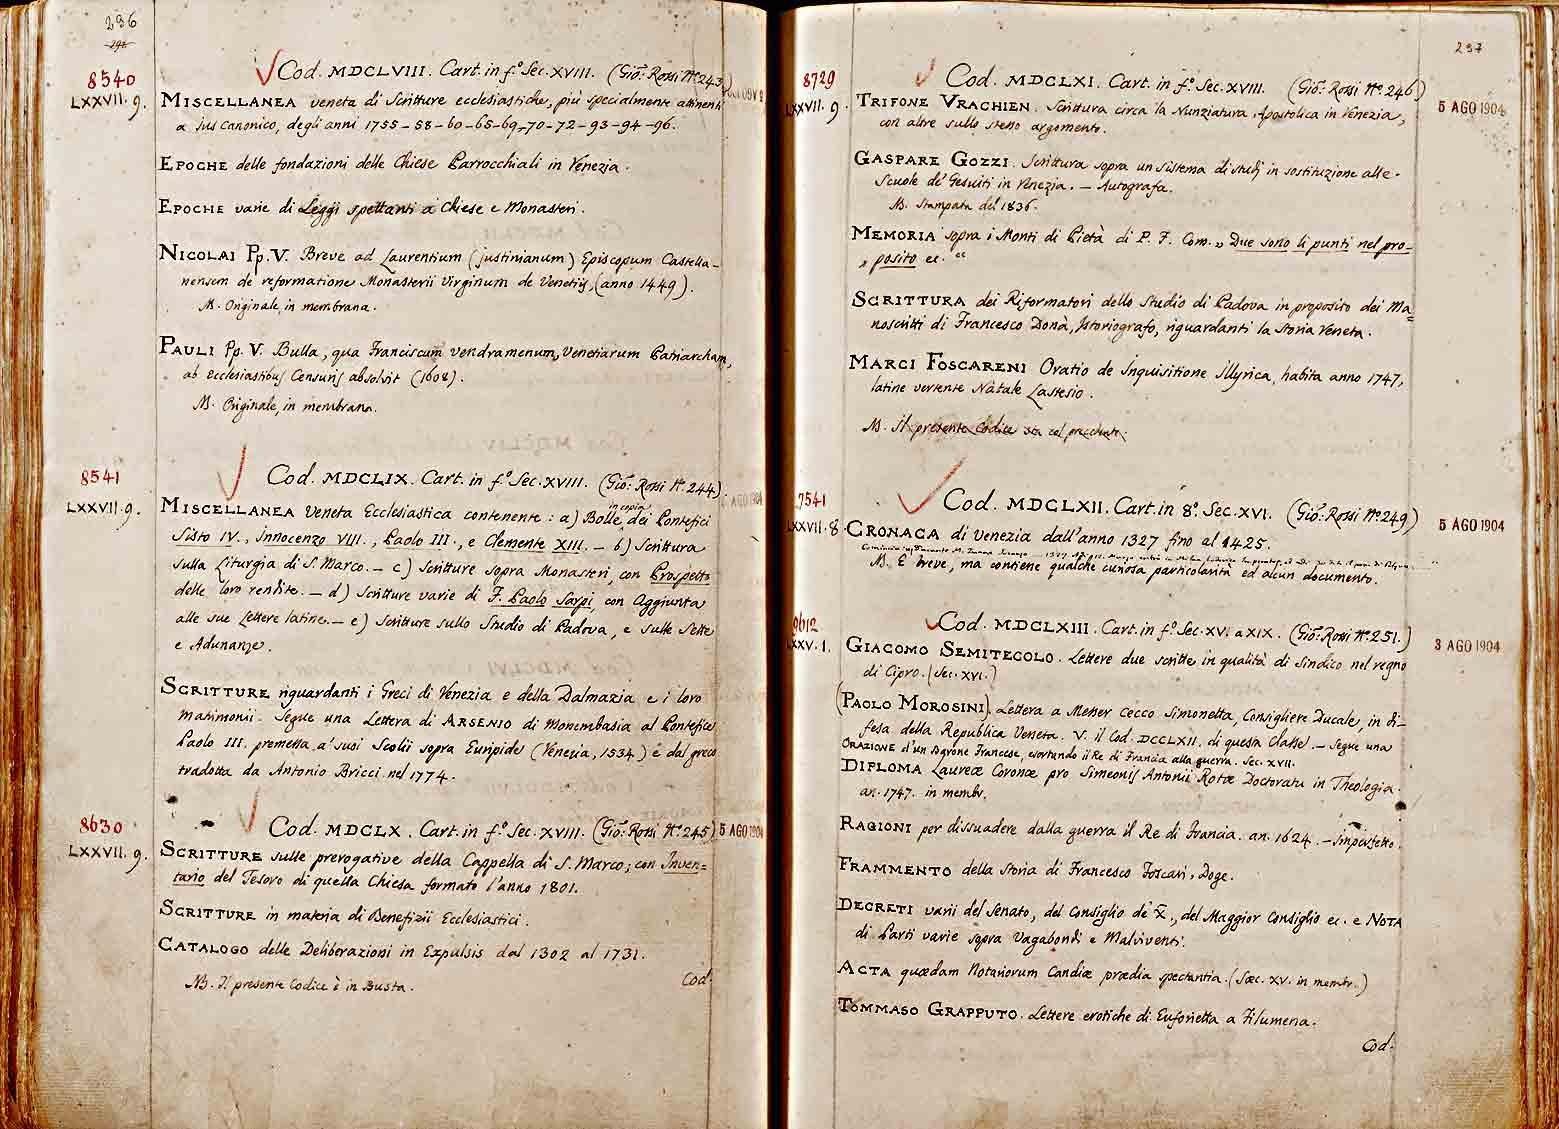 236
292
8540
LXXVII. 9.
Cod. MDCLVIII. Cart. in f.º Sec. XVIII. (Gio: Rossi Nº 243.)
MISCELLANEA veneta di Scritture ecclesiastiche, più specialmente attinenti
a jus canonico, degli anni 1755-58-60-65-69-70-72-93-94-96.
EPOCHE delle fondazioni delle Chiese Parrocchiali in Venezia.
EPOCHE varie di Leggi spettanti a Chiese e Monasteri.
NICOLAI Pp. V. Breve ad Laurentium (Justinianum) Episcopum Castella-
nensem de reformatione Monasterii Virginum de Venetiis, (anno 1449).
NB. Originale, in membrana.
PAULI Pp. V. Bulla, qua Franciscum Vendramenum, Venetiarum Patriarcham,
ab ecclesiastibus Censuris absolvit (1608).
NB. Originale, in membrana.
8541
LXXVII. 9.
AGO 1904
Cod. MDCLIX. Cart. in f.º Sec. XVIII. (Gio: Rossi Nº 244).
in copia
MISCELLANEA Veneta Ecclesiastica contenente: a) Bolle, dei Pontefici
Sisto IV., Innocenzo VIII., Paolo III., e Clemente XIII. — b) Scrittura
sulla Liturgia di S. Marco. — c) Scritture sopra Monasteri, con Prospetto
delle loro rendite. — d) Scritture varie di F. Paolo Sarpi, con Aggiunta
alle sue Lettere latine. — e) Scritture sullo Studio di Padova, e sulle Sette
e Adunanze.
SCRITTURE riguardanti i Greci di Venezia e della Dalmazia e i loro
Matrimonii. Segue una Lettera di ARSENIO di Monembasia al Pontefice
Paolo III. premessa a' suoi Scolii sopra Euripide (Venezia, 1534) e dal greco
tradotta da Antonio Bricci nel 1774.
8630
LXXVII. 9.
5 AGO 1904
Cod. MDCLX. Cart. in f.º Sec. XVIII. (Gio: Rossi Nº 245)
SCRITTURE sulle prerogative della Cappella di S. Marco; con Inven=
tario del Tesoro di quella Chiesa formato l'anno 1801.
SCRITTURE in materia di Benefizii Ecclesiastici.
CATALOGO delle Deliberazioni in Expulsis dal 1302 al 1731.
NB. Il presente Codice è in Busta.
Cod.
237
8729
LXXVII. 9.
5 AGO 1904
Cod. MDCLXI. Cart. in f.º Sec. XVIII. (Gio: Rossi Nº 246)
TRIFONE VRACHIEN. Scrittura circa la Nunziatura Apostolica in Venezia,
con altre sullo stesso argomento.
GASPARE GOZZI. Scrittura sopra un sistema di studj in sostituzione alle
Scuole de' Gesuiti in Venezia. — Autografa.
NB. Stampata del 1836.
MEMORIA sopra i Monti di Pietà di P. F. Com. „ Due sono li punti nel pro-
„ posito ec. “
SCRITTURA dei Riformatori dello Studio di Padova in proposito dei Ma=
noscritti di Francesco Donà, Istoriografo, riguardanti la Storia Veneta.
MARCI FOSCARENI Oratio de Inquisitione Illyrica, habita anno 1747,
latine vertente Natale Lastesio.
NB. Il presente Codice sta col precedente.
7541
LXXVII. 8
5 AGO 1904
Cod. MDCLXII. Cart. in 8º. Sec. XVI. (Gio: Rossi Nº 249)
CRONACA di Venezia dall'anno 1327 fino al 1425.
NB. È breve, ma contiene qualche curiosa particolarità ed alcun documento.
9612
LXXV. 1.
3 AGO 1904
Cod. MDCLXIII. Cart. in f.º Sec. XVI. a XIX. (Gio: Rossi Nº 251.)
GIACOMO SEMITECOLO. Lettere due scritte in qualità di Sindico nel regno
di Cipro. (Sec. XVI.)
(PAOLO MOROSINI). Lettera a Messer Cecco Simonetta, Consigliere Ducale, in di-
fesa della Republica Veneta. V. il Cod. DCCLXII. di questa Classe. — Segue una
ORAZIONE d'un Barone Francese, esortando il Re di Francia alla guerra. Sec. XVII.
DIPLOMA Laureæ Coronæ pro Simeonis Antonii Rotæ Doctoratu in Theologia.
an. 1747. in membr.
RAGIONI per dissuadere dalla guerra il Re di Francia. an. 1624. — Imperfetto.
FRAMMENTO della Storia di Francesco Foscari, Doge.
DECRETI varii del Senato, del Consiglio de' X., del Maggior Consiglio ec. e NOTA
di Parti varie sopra Vagabondi e Malviventi.
ACTA quædam Notariorum Candiæ prædia spectantia. (Sæc. XV. in membr.)
TOMMASO GRAPPUTO. Lettere erotiche di Eufonietta a Filumena.
Cod.